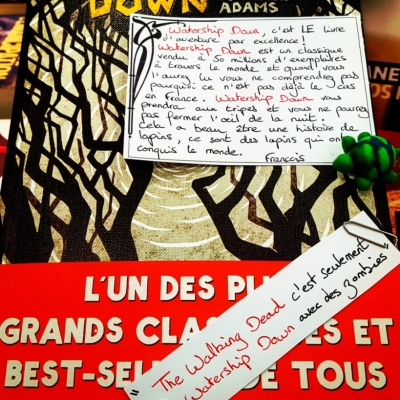 DOWN
ADAMS
Watership Down, c'est LE livre
d'aventure par excellence!
Watership Down est un classique
vendu à 50 millions d'exemplaires
à travers le monde et quand vous
l'aurez lu vous ne comprendrez pas
pourquoi ce n'est pas déjà le cas
en France. Watership Down vous
prendra aux tripes et vous ne pourrez
pas fermer l'œil de la nuit.
Cela a beau être une histoire de
lapins, ce sont des lapins qui ont
conquis le monde.
François
L'UN DES
GRANDS ET
BEST- DE TOUS
"The Walking Dead c'est seulement
Watership Down avec des zombies